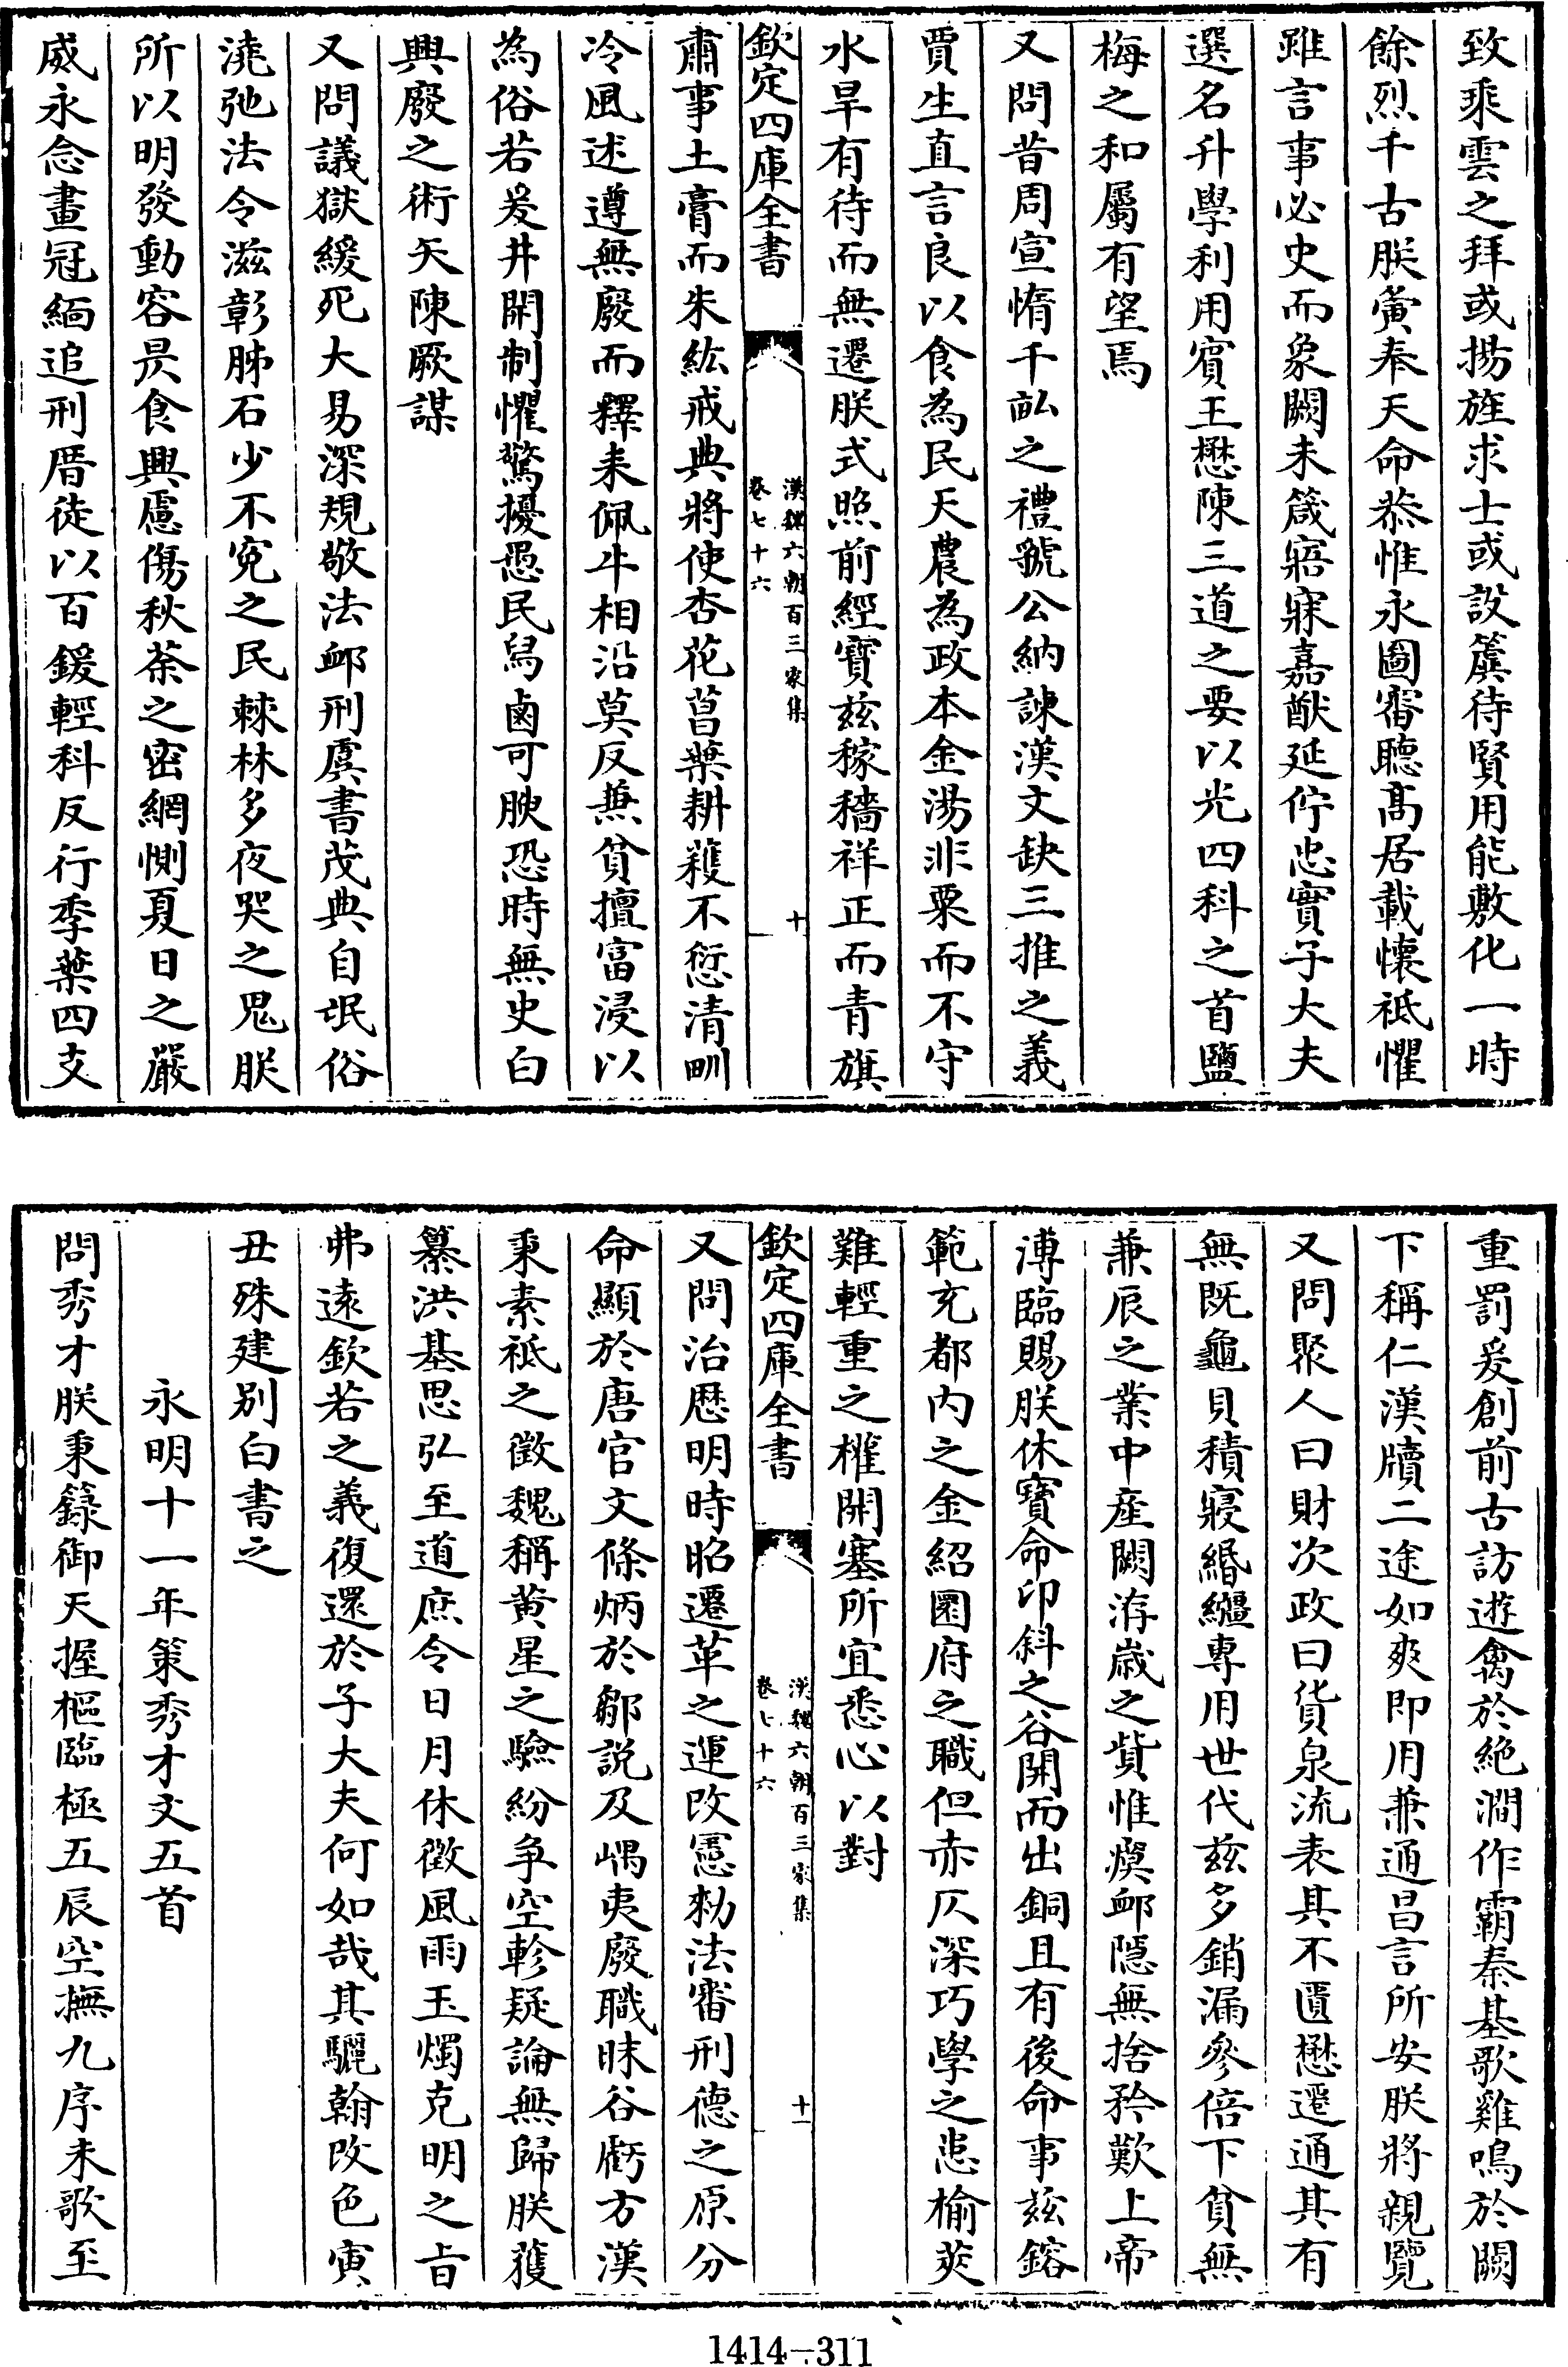 致乘雲之拜或揚旌求士或設簴待賢用能敷化一時
餘烈千古朕夤奉天命恭惟永圖審聽高居載懷祗懼
雖言事必史而象闕未箴寤寐嘉猷延佇忠實子大夫
選名升學利用賓王懋陳三道之要以光四科之首鹽
梅之和屬有望焉
又問昔周宣惰千畝之禮虢公納諫漢文缺三推之義
賈生直言良以食為民天農為政本金湯非粟而不守
水旱有待而無遷朕式照前經寳兹稼穡祥正而青旗
欽定四庫全書
漢魏六朝百三家集
卷七十六
十
肅事土膏而朱紘戒典將使杏花菖葉耕穫不愆清甽
冷風述遵無廢而釋耒佩牛相沿莫反兼貧擅富浸以
為俗若爰井開制懼驚擾愚民舄鹵可腴恐時無史白
興廢之術矢陳厥謀
又問議獄緩死大易深規敬法䘏刑虞書茂典自氓俗
澆弛法令滋彰肺石少不寃之民棘林多夜哭之鬼朕
所以明發動容昃食興慮傷秋荼之密網惻夏日之嚴
威永念畫冠緬追刑厝徒以百鍰輕科反行季葉四支
重罰爰創前古訪遊禽於絶澗作霸秦基歌雞鳴於闕
下稱仁漢牘二途如爽即用兼通昌言所安朕將親覽
又問聚人曰財次政曰貨泉流表其不匱懋遷通其有
無既龜貝積寢緡繦專用世代兹多銷漏參倍下貧無
兼辰之業中産闕洊歲之貲惟瘼䘏隱無捨矜歎上帝
溥臨賜朕休寳命卭斜之谷開而出銅且有後命事兹鎔
範充都内之金紹圜府之職但赤仄深巧學之患榆莢
難輕重之權開塞所宜悉心以對
欽定四庫全書
漢魏六朝百三家集
卷七十六
十一
又問治厯明時昭遷革之運改憲勑法審刑德之原分
命顯於唐官文條炳於鄒説及嵎夷廢職昧谷虧方漢
秉素祇之徵魏稱黄星之驗紛爭空軫疑論無歸朕獲
纂洪基思弘至道庶令日月休徵風雨玉燭克明之㫖
弗遠欽若之義復還於子大夫何如哉其驪翰改色寅
丑殊建别白書之
永明十一年策秀才文五首
問秀才朕秉籙御天握樞臨極五辰空撫九序未歌至
1414-311